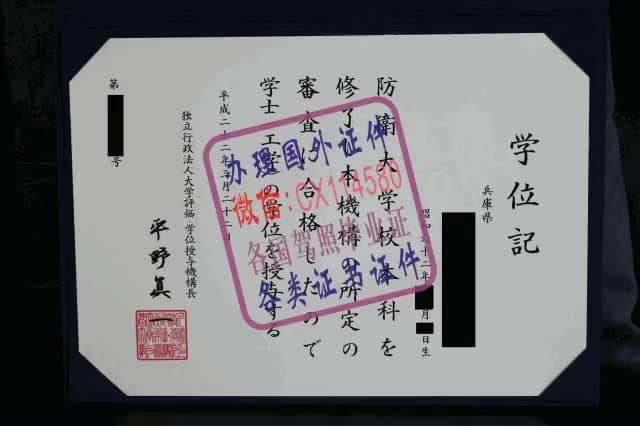 学位記
兵庫県
昭和六十二年 月 日生
防衛大学校本科を
修了し本機構の所定の
審査に合格したので
学士 工学の学位を授与する
平成二十二年三月二十二日
独立行政法人大学評価・学位授与機構長
平野眞一
第 号
办理国外证件
微信:CX114580
各国驾照毕业证
各类证书证件